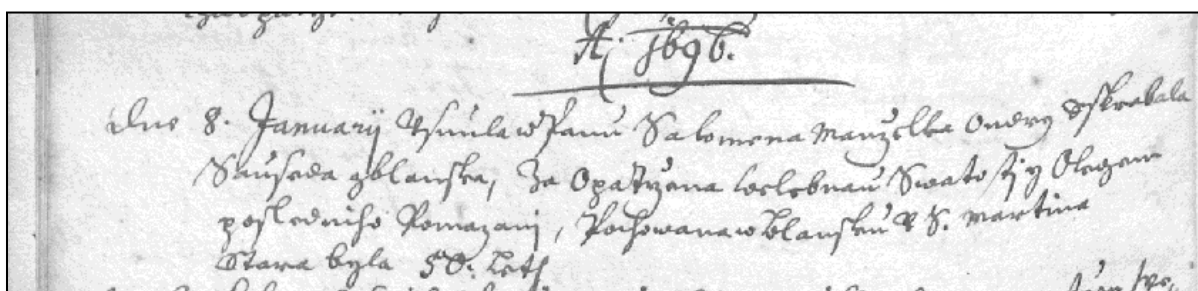 A. 1696.
dne 8. Januarij Vsnula w Panu Salomena Manzelka Ondry Oskrabala
Sauseda z blanska, Za Opatrzena welebnau Swatosty y Olegem
posledniho Pomazanj, Pochowana w blansku v S. Martina
Stara byla 50. Leth